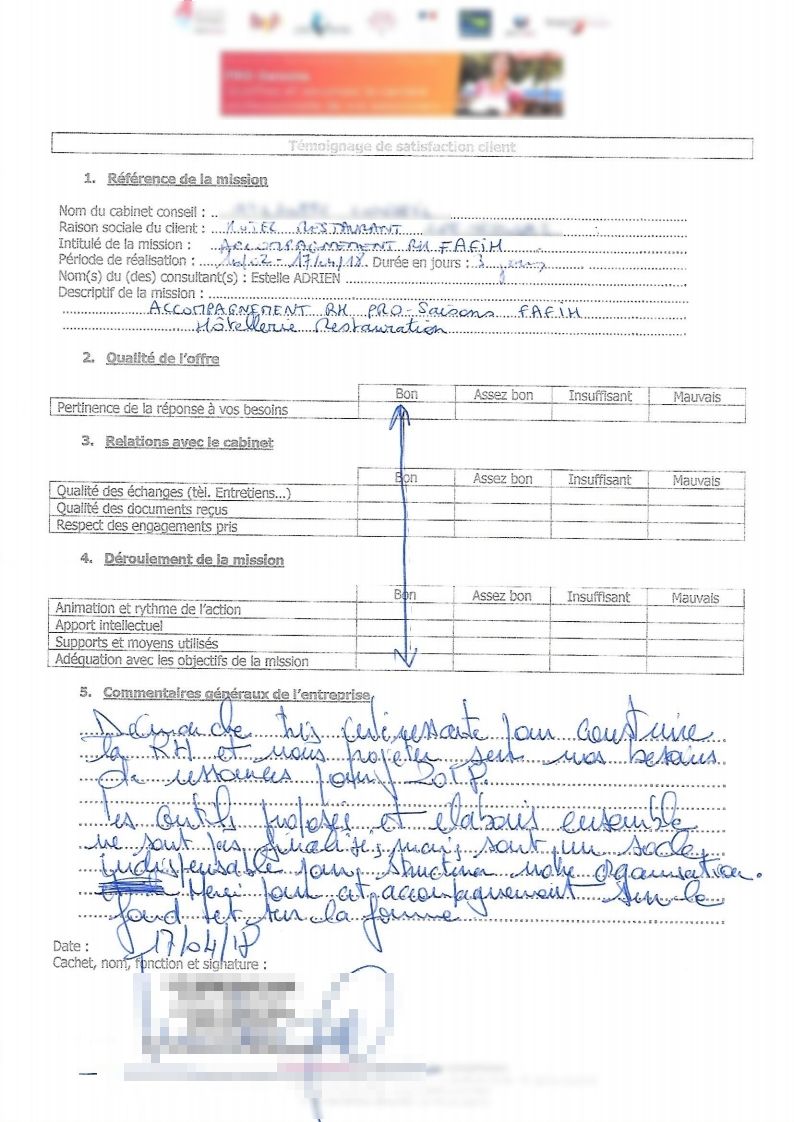 PRO-Saisons
Témoignage de satisfaction client
1. Référence de la mission
Nom du cabinet conseil :
Raison sociale du client : HOTEL RESTAURANT
Intitulé de la mission : ACCOMPAGNEMENT RH FAFIH
Période de réalisation : - 17/04/18. Durée en jours : 3 jours
Nom(s) du (des) consultant(s) : Estelle ADRIEN
Descriptif de la mission :
ACCOMPAGNEMENT RH PRO-Saisons FAFIH
Hôtellerie Restauration
2. Qualité de l'offre
Bon Assez bon Insuffisant Mauvais
Pertinence de la réponse à vos besoins
3. Relations avec le cabinet
Bon Assez bon Insuffisant Mauvais
Qualité des échanges (tèl. Entretiens...)
Qualité des documents reçus
Respect des engagements pris
4. Déroulement de la mission
Bon Assez bon Insuffisant Mauvais
Animation et rythme de l'action
Apport intellectuel
Supports et moyens utilisés
Adéquation avec les objectifs de la mission
5. Commentaires généraux de l'entreprise
Démarche très intéressante pour construire
la RH et nous projeter sur nos besoins
de ressources pour 2018.
Les outils proposés et élaborés ensemble
ne sont pas finalisés, mais sont un socle
indispensable pour structurer notre organisation.
Merci pour cet accompagnement sur le
fond et sur la forme
Date : 17/04/18
Cachet, nom, fonction et signature :